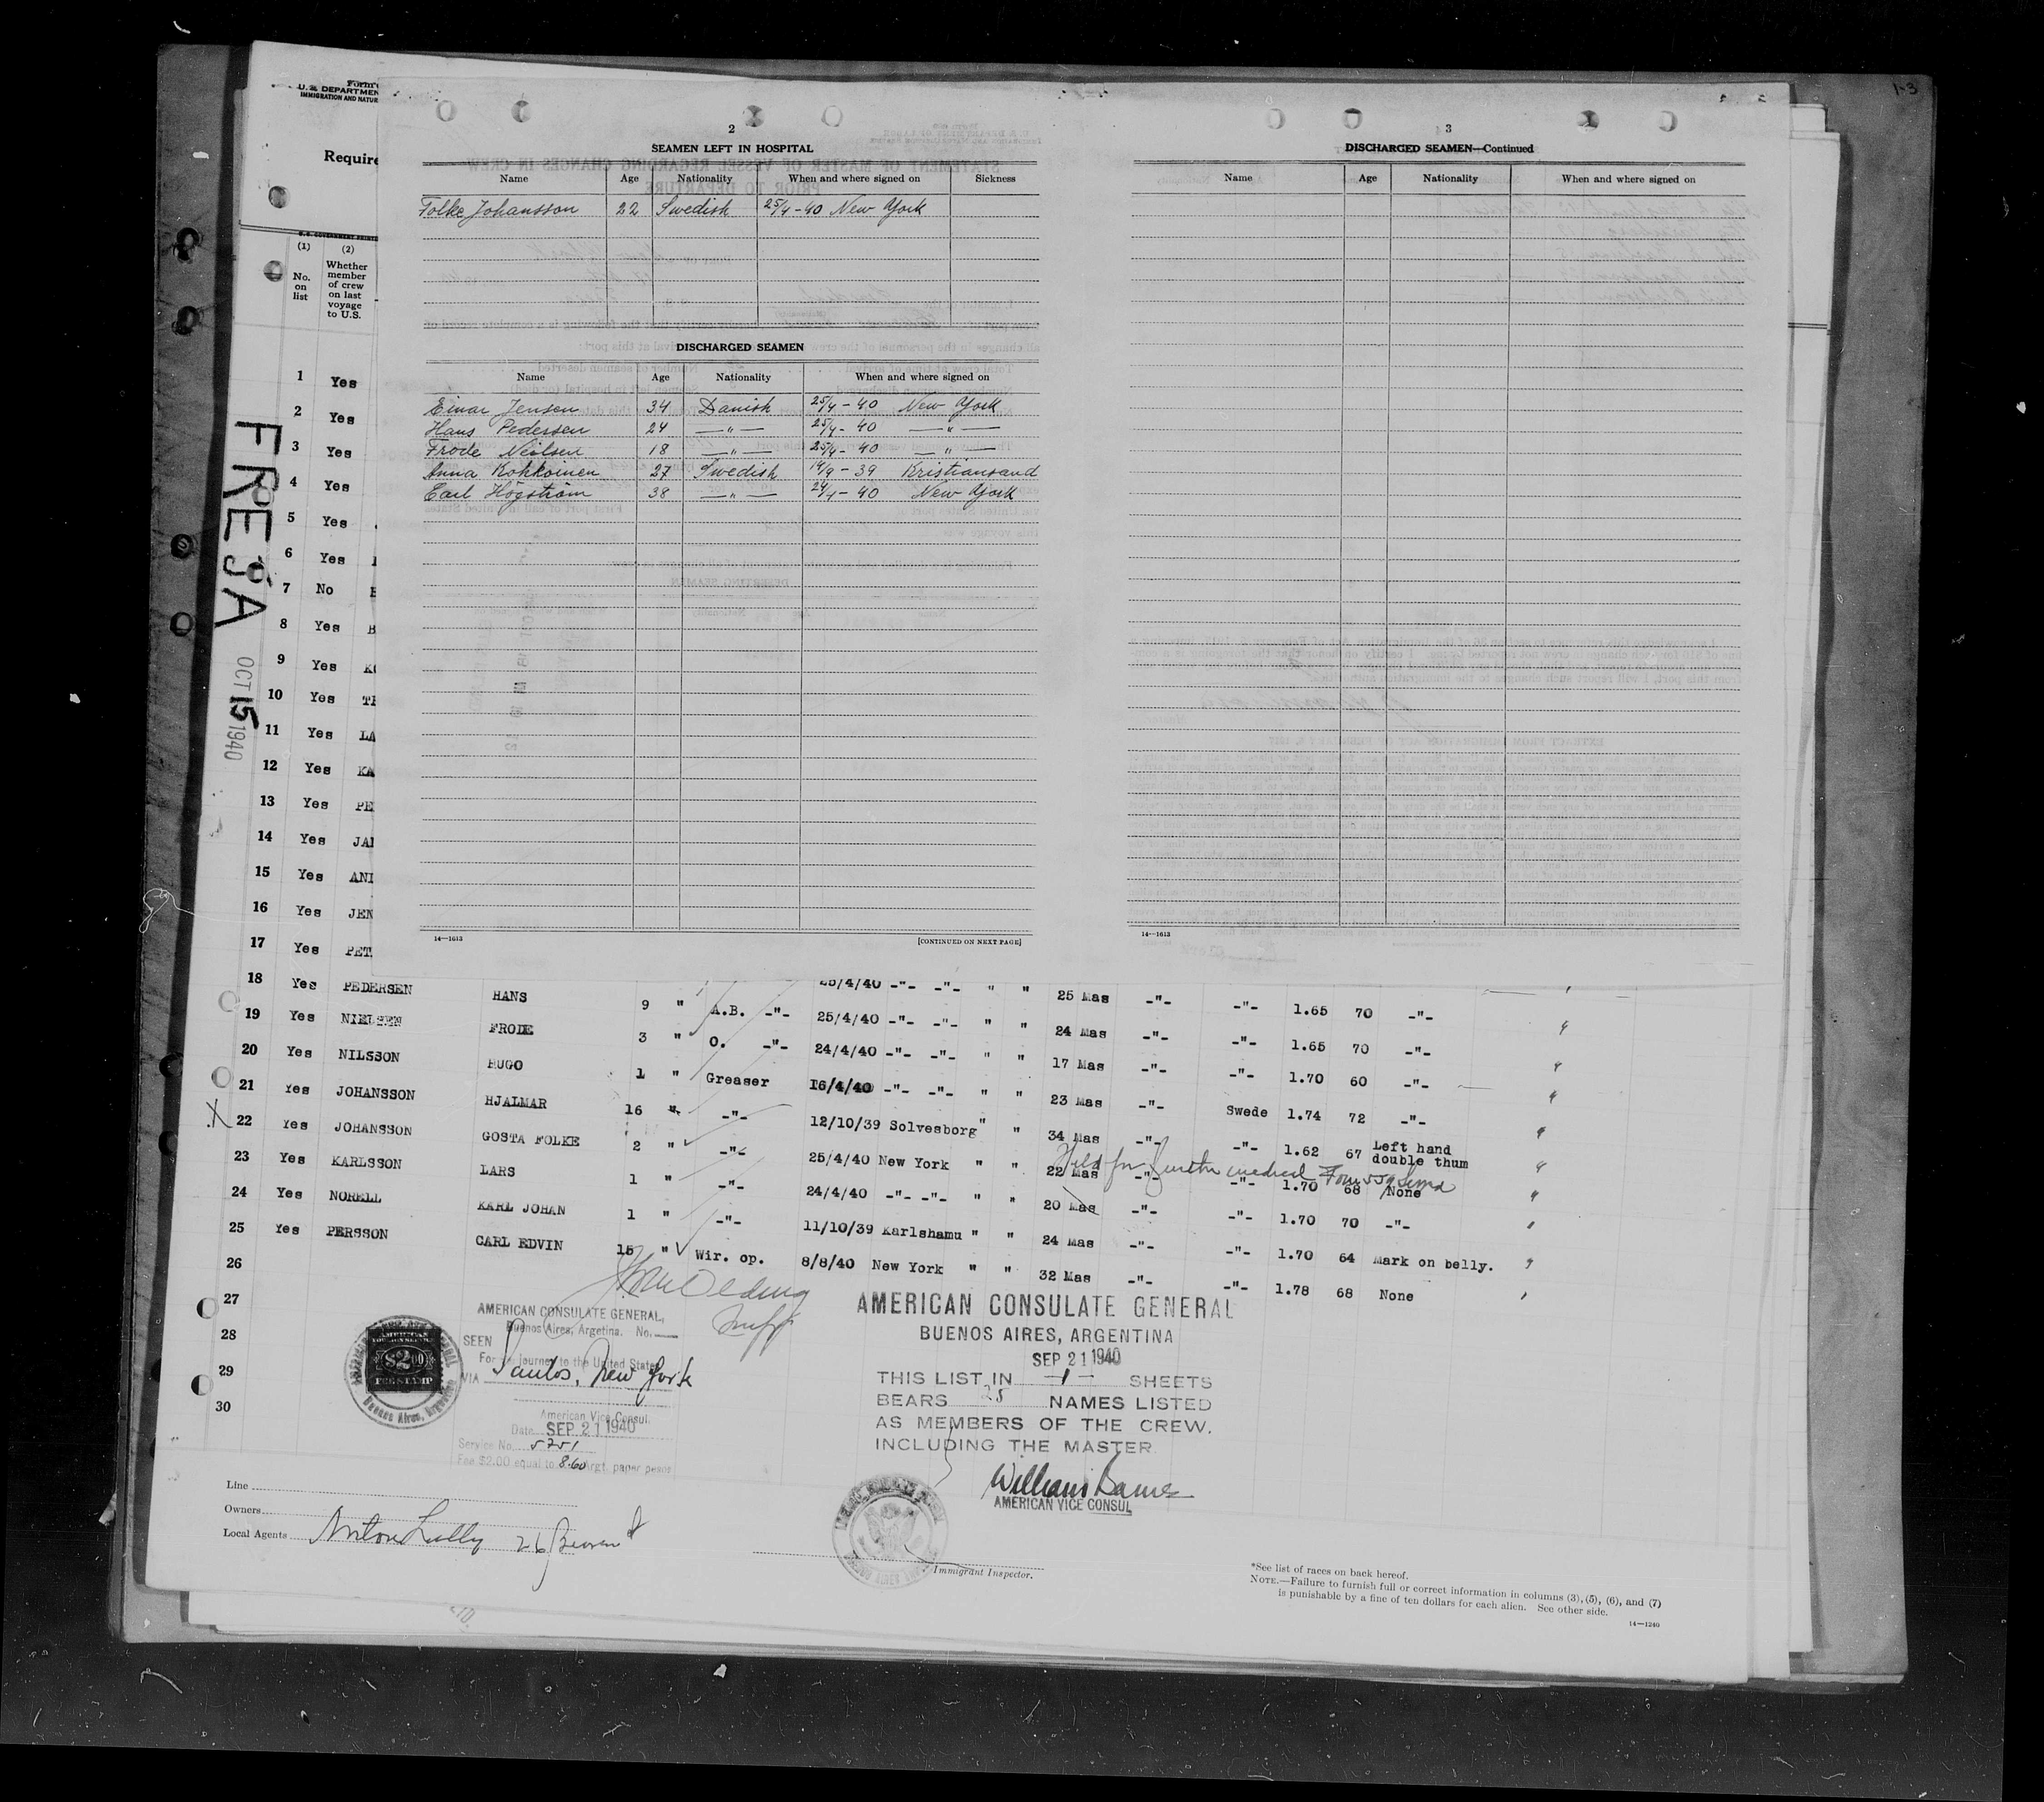 1-3
Form
U. S. DEPARTMEN
IMMIGRATION AND NATUR
Require
(1) (2)
No. on list
Whether member of crew on last voyage to U.S.
FREJA
OCT 15 1940
2
SEAMEN LEFT IN HOSPITAL
Name Age Nationality When and where signed on Sickness
Folke Johansson 22 Swedish 25/4-40 New York
DISCHARGED SEAMEN
Name Age Nationality When and where signed on
Einar Jensen 34 Danish 25/4-40 New York
Hans Pedersen 24 -"- 25/4-40 -"-
Frode Neilsen 18 -"- 25/4-40 -"-
Anna Kokkoinen 27 Swedish 14/9-39 Kristiansand
Carl Högström 38 -"- 24/4-40 New York
14—1613
[CONTINUED ON NEXT PAGE]
3
DISCHARGED SEAMEN—Continued
Name Age Nationality When and where signed on
14—1613
1 Yes
2 Yes
3 Yes
4 Yes
5 Yes
6 Yes
7 No
8 Yes B
9 Yes KO
10 Yes TH
11 Yes LA
12 Yes KA
13 Yes PE
14 Yes JAN
15 Yes AND
16 Yes JEN
17 Yes PET
18 Yes PEDERSEN HANS 9 " A.B. -"- 25/4/40 -"- -"- " " 25 Mas -"- -"- 1.65 70 -"-
19 Yes NIELSEN FRODE 3 " O. -"- 25/4/40 -"- -"- " " 24 Mas -"- -"- 1.65 70 -"-
20 Yes NILSSON HUGO 1 " Greaser 24/4/40 -"- -"- " " 17 Mas -"- -"- 1.70 60 -"-
21 Yes JOHANSSON HJALMAR 16 " -"- 16/4/40 -"- -"- " " 23 Mas -"- Swede 1.74 72 -"-
22 Yes JOHANSSON GOSTA FOLKE 2 " -"- 12/10/39 Solvesborg " " 34 Mas -"- -"- 1.62 67 Left hand double thum
Held for further medical
23 Yes KARLSSON LARS 1 " -"- 25/4/40 New York " " 22 Mas -"- -"- 1.70 68 None
24 Yes NORELL KARL JOHAN 1 " -"- 24/4/40 -"- -"- " " 20 Mas -"- -"- 1.70 70 -"-
25 Yes PERSSON CARL EDVIN 15 " Wir. op. 11/10/39 Karlshamu " " 24 Mas -"- -"- 1.70 64 Mark on belly.
8/8/40 New York " " 32 Mas -"- -"- 1.78 68 None
26
27
28
29
30
AMERICAN CONSULATE GENERAL,
Buenos Aires, Argetina. No.
SEEN
For the journey to the United States
VIA Santos, New York
American Vice Consul.
Date SEP 21 1940
Service No. 5751
Fee $2.00 equal to 8.60 Argt. paper pesos
AMERICAN
$2.00
FEE STAMP
Buenos Aires, Argentina
AMERICAN CONSULATE GENERAL
BUENOS AIRES, ARGENTINA
SEP 21 1940
THIS LIST IN -1- SHEETS
BEARS 25 NAMES LISTED
AS MEMBERS OF THE CREW.
INCLUDING THE MASTER
William Barnes
AMERICAN VICE CONSUL
Line
Owners
Local Agents Anton Lully 26 Beaver St
Immigrant Inspector.
*See list of races on back hereof.
NOTE.—Failure to furnish full or correct information in columns (3), (5), (6), and (7)
is punishable by a fine of ten dollars for each alien. See other side.
14—1240